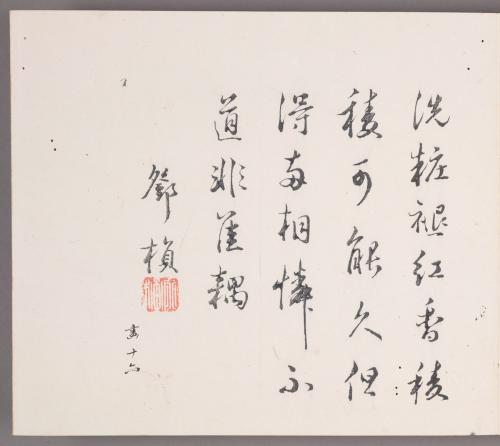 洗粧褪紅香稜
稜可能久但
得兩相憐不
道非佳耦
鄧楨
十六